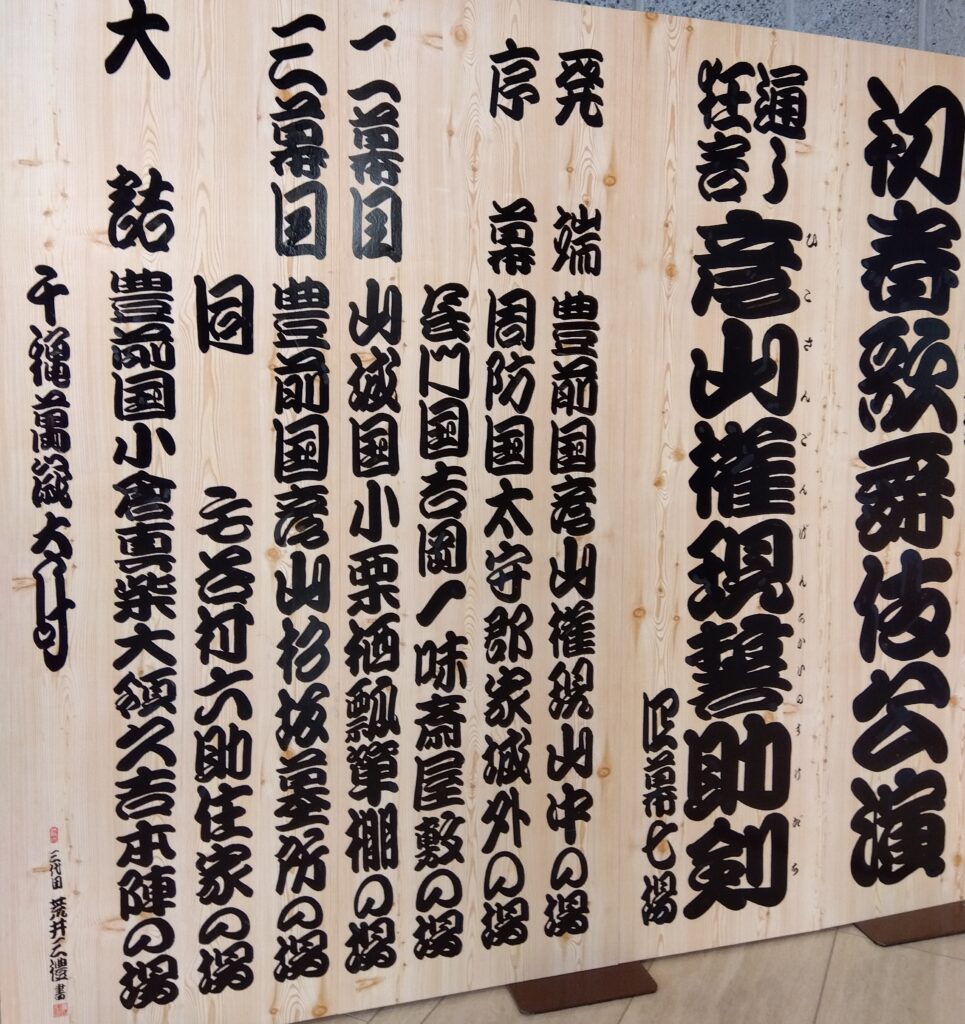 初春歌舞伎公演
通し狂言
彦山権現誓助剣
ひこさんごんげんちかいのすけだち
四幕七場
発端 豊前国彦山権現山中の場
序幕 周防国太守郡家城外の場
長門国吉岡一味斎屋敷の場
二幕目 山城国小栗栖瓢箪棚の場
三幕目 豊前国彦山杉坂墓所の場
同 毛谷村六助住家の場
大詰 豊前国小倉真柴大領久吉本陣の場
千穐萬歳大々叶
三代目 荒井三禮 書